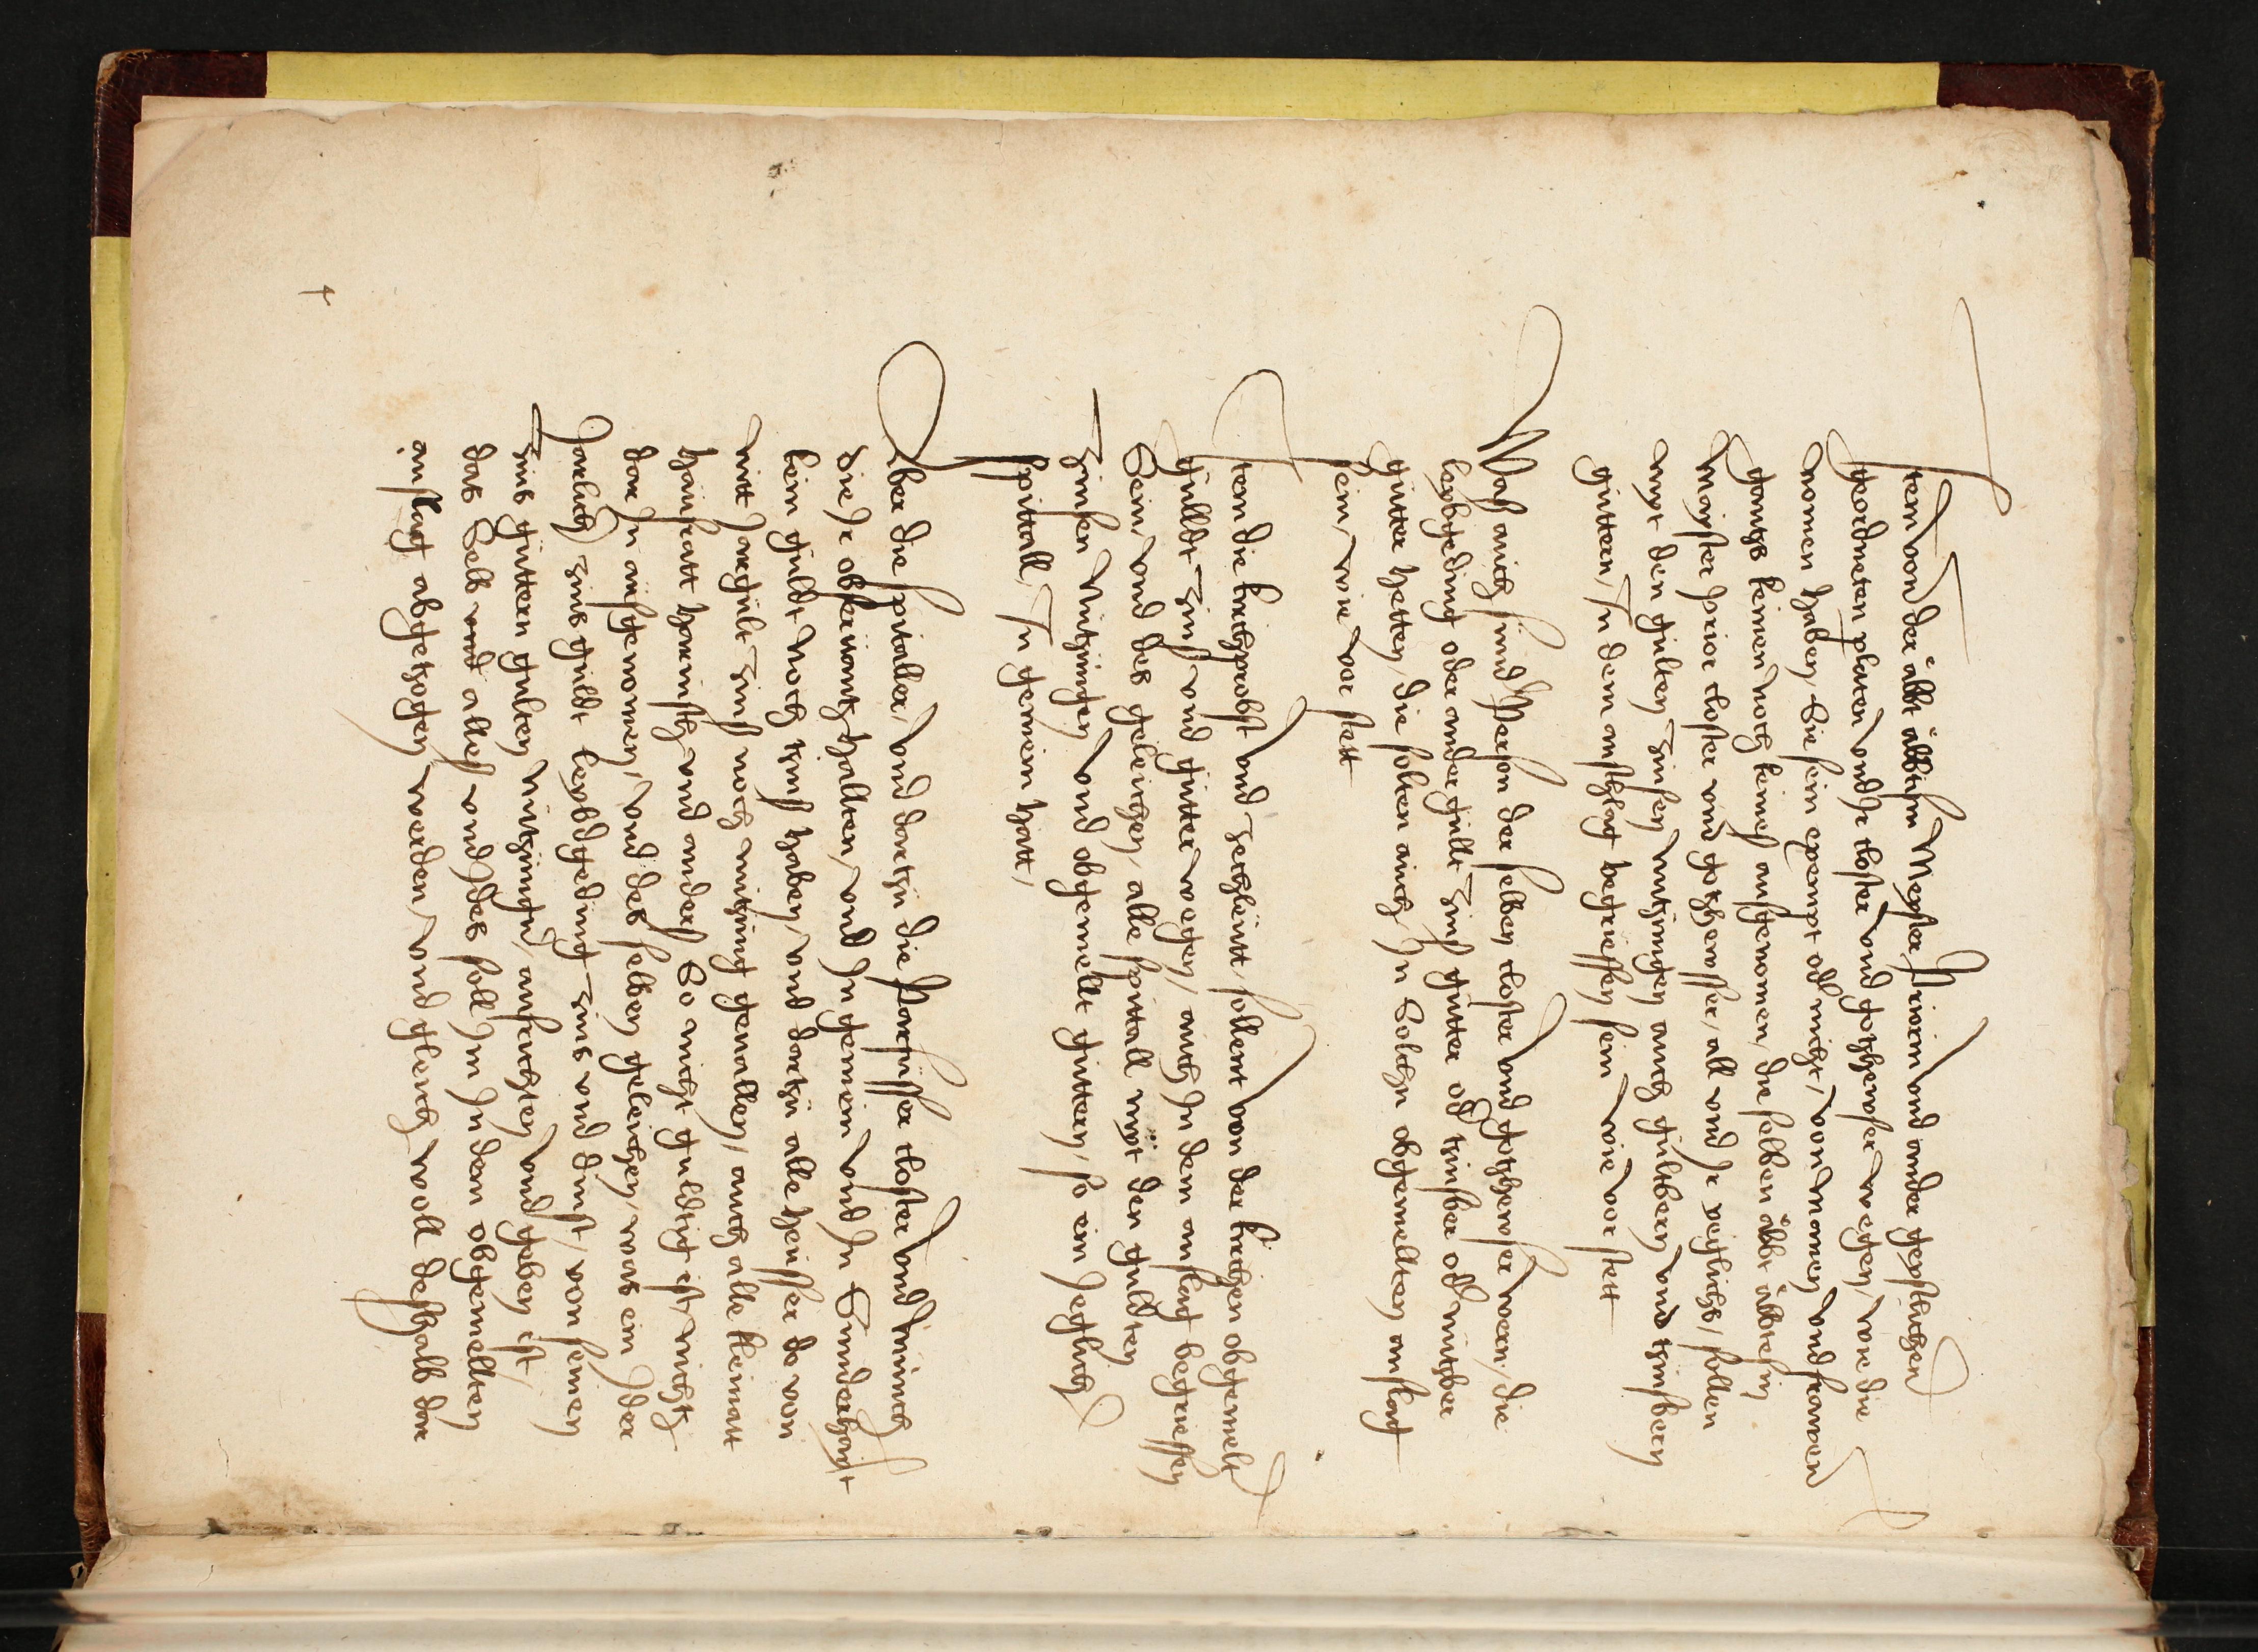 Item von der äbbt äbbtissn Meyster Priorin und ander geystlichen
geordneten ploten und Ir closter und gotzhewser wegen, wie die
nomen haben, Sie sein exempt od nicht, von manen und frawen
gantz keinen noch keines ausgenomen, die selben äbbt äbbtesin
Mayster prior closter und gotzhewsser, all und Ir yeglichs, sollen
myt den gulten zinsen nutzungen auch gultbern und tzinsbern
guttern, In dem anschlag begrieffen sein, wie vor stett
Was auch sund Person der selben closter und gotzhewser wern, die
leybgeding oder ander gullt zins gutter od tzinsber od nutzber
gutter hetten, die solten auch In Solchn obgemellten anslag
sein, wie vor stett
Item die kirchprobst und zechleutt, sollent von der kirchen obgemelt
gulldt zins und gutter wegen, auch In dem anslag begrieffen
Sein, und des geleichen, alle spittall myt den guldten
zinsen Nutzungen und obgemellt guttern, so ein Jeglich
spittall, In gemein hatt,
Aber die spitaller, und dartzu die parfusser closter und munch
die Ir obserwantz hallten, und In gemein und In Sunderhayt
kein guldt noch tzins haben, und dartzu alle heusser do von
nitt Jargult zins noch nutzung gevallen, auch alle kleinatt
hausratt harnisch und anders So nicht guldtig ist, nichtz
dar In ausgenomen, und des selben geleichen, was ein Jder
Jarlich zins guldt leybdgeding zins und dinst, von seinen
zins guttern gulten nutzungen, ausrichten und geben ist,
das Selb und alles und Jdes soll Im In dem obgemellten
anslag abgetzogen werden, und gleich woll deshalb dar